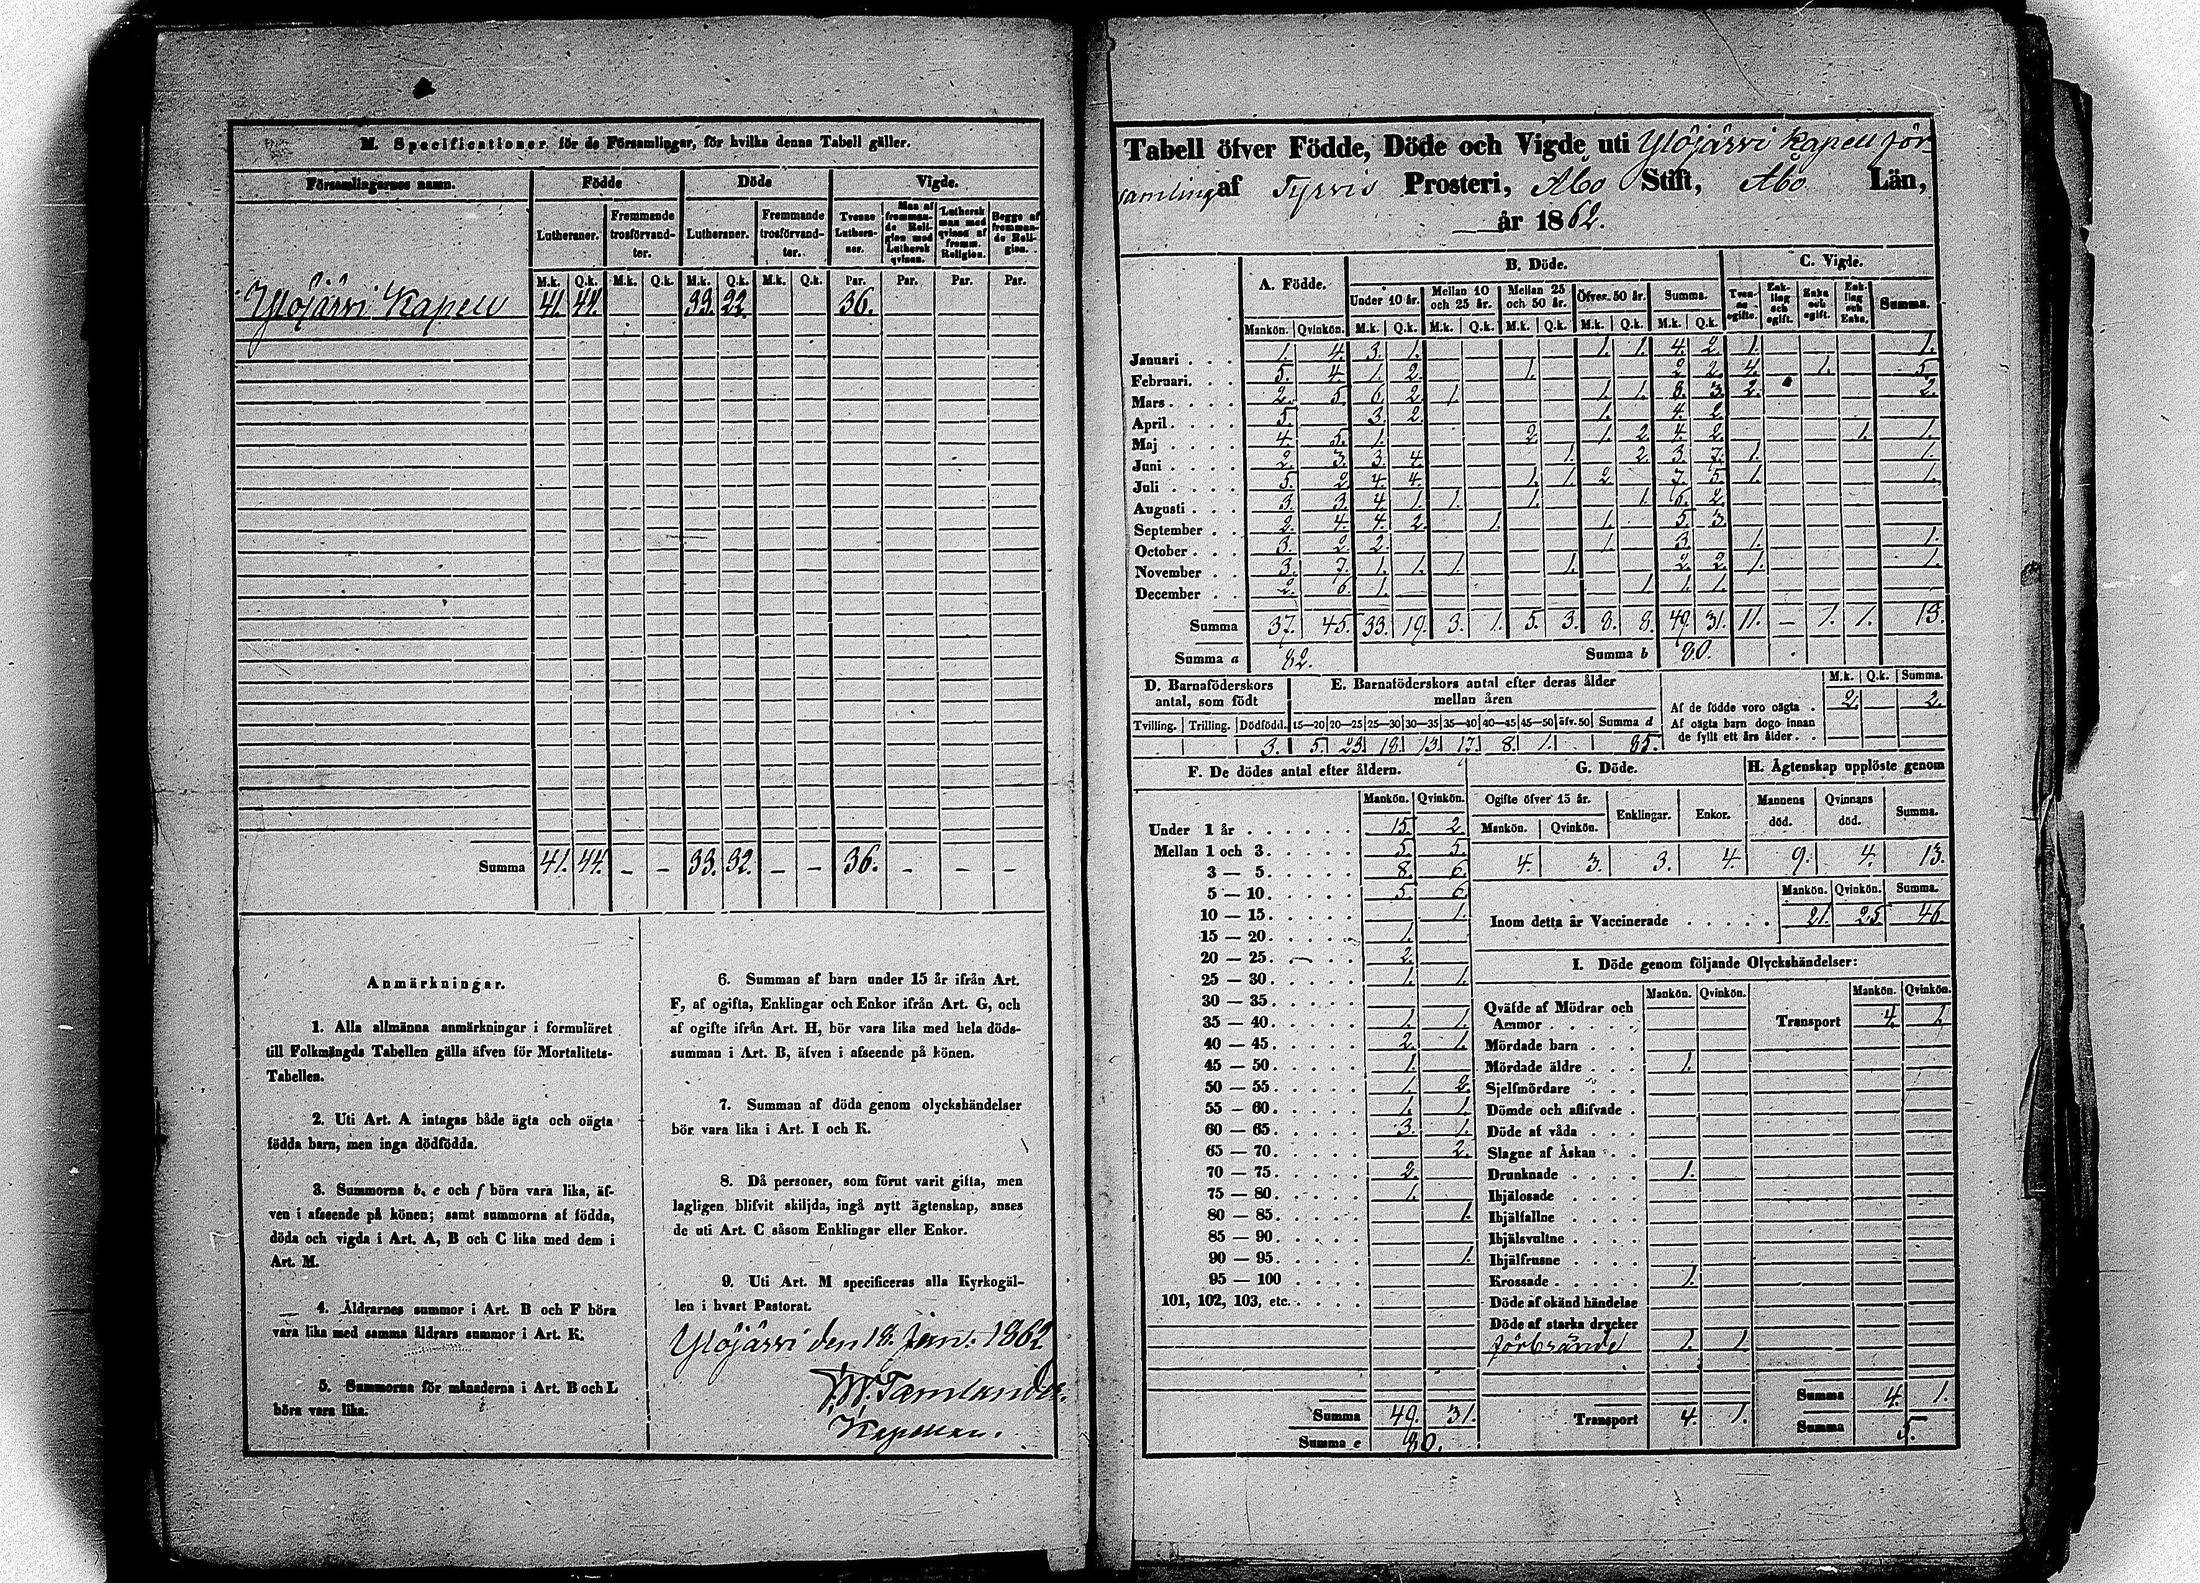 M. Specificationer för de Församlingar, för hvilka denna Tabell gäller.
Församlingarnes namn. Födde Döde Vigde.
Lutheraner. Fremmande trosförvandter. Lutheraner. Fremmande trosförvandter. Tvenne Lutheraner. Man af fremmande Religion med Luthersk qvinna. Luthersk man med qvinna af fremm. Religion. Begge af fremmande Religion.
M.k. Q.k. M.k. Q.k. M.k. Q.k. M.k. Q.k. Par. Par. Par. Par.
Ylöjärvi Kapell 41. 44. 33. 32. 36.
Summa 41. 44. – – 33. 32. – – 36. – – –
Anmärkningar.
1. Alla allmänna anmärkningar i formuläret
till Folkmängds Tabellen gälla äfven för Mortalitets-
Tabellen.
2. Uti Art. A intagas både ägta och oägta
födda barn, men inga dödfödda.
3. Summorna b, e och f böra vara lika, äf-
ven i afseende på könen; samt summorna af födda,
döda och vigda i Art. A, B och C lika med dem i
Art. M.
4. Åldrarnes summor i Art. B och F böra
vara lika med samma åldrars summor i Art. K.
5. Summorna för månaderna i Art. B och L
böra vara lika.
6. Summan af barn under 15 år ifrån Art.
F, af ogifta, Enklingar och Enkor ifrån Art. G, och
af ogifte ifrån Art. H, bör vara lika med hela döds-
summan i Art. B, äfven i afseende på könen.
7. Summan af döda genom olyckshändelser
bör vara lika i Art. I och K.
8. Då personer, som förut varit gifta, men
lagligen blifvit skiljda, ingå nytt ägtenskap, anses
de uti Art. C såsom Enklingar eller Enkor.
9. Uti Art. M specificeras alla Kyrkogäl-
len i hvart Pastorat.
Ylöjärvi den 18. Jan. 1862
Kapellan.
Tabell öfver Födde, Döde och Vigde uti Ylöjärvi Kapell för-
samling af Tyrvis Prosteri, Åbo Stift, Åbo Län,
år 1862.
A. Födde. B. Döde. C. Vigde.
Under 10 år. Mellan 10 och 25 år. Mellan 25 och 50 år. Öfver 50 år. Summa. Tvenne ogifte. Enkling och ogift. Enka och ogift. Enkling och Enka. Summa.
Mankön. Qvinkön. M.k. Q.k. M.k. Q.k. M.k. Q.k. M.k. Q.k. M.k. Q.k.
Januari 1. 4. 3. 1. 1. 1. 4. 2. 1. 1.
Februari. 5. 4. 1. 2. 1. 2. 2. 4. 1. 5.
Mars 2. 5. 6. 2. 1. 1. 1. 8. 3. 2. 2.
April 5. 3. 2. 1. 4. 2.
Maj 4. 5. 1. 2. 1. 2. 4. 2. 1. 1.
Juni 2. 3. 3. 4. 1. 2. 3. 7. 1. 1.
Juli 5. 2. 4. 4. 1. 1. 2. 7. 5. 1. 1.
Augusti 3. 3. 4. 1. 1. 1. 1. 6. 2.
September 2. 4. 4. 2. 1. 1. 5. 3.
October 3. 2. 2. 1. 3. 1. 1.
November 3. 7. 1. 1. 1. 1. 2. 2. 1. 1.
December 2. 6. 1. 1. 1. 1.
Summa 37. 45. 33. 19. 3. 1. 5. 3. 8. 8. 49. 31. 11. – 1. 1. 13.
Summa a 82. Summa b 80.
D. Barnaföderskors antal, som födt E. Barnaföderskors antal efter deras ålder mellan åren
M.k. Q.k. Summa.
Af de födde voro oägta 2. 2.
Af oägta barn dogo innan de fyllt ett års ålder
Tvilling. Trilling. Dödfödd. 15—20 20—25 25—30 30—35 35—40 40—45 45—50 öfv. 50 Summa d
3. 5. 23. 18. 13. 17. 8. 1. 85.
F. De dödes antal efter åldern.
Mankön. Qvinkön.
Under 1 år 15. 2.
Mellan 1 och 3. 5. 5.
3 — 5. 8. 6.
5 — 10. 5. 6.
10 — 15. 1.
15 — 20. 1.
20 — 25. 2.
25 — 30. 1. 1.
30 — 35.
35 — 40. 1. 1.
40 — 45. 2. 1.
45 — 50. 1.
50 — 55. 1. 2.
55 — 60. 1. 1.
60 — 65. 3. 1.
65 — 70. 2.
70 — 75. 2.
75 — 80. 1.
80 — 85. 1.
85 — 90.
90 — 95. 1.
95 — 100
101, 102, 103, etc.
Summa 49. 31.
Summa e 80.
G. Döde.
Ogifte öfver 15 år. Enklingar. Enkor.
Mankön. Qvinkön.
4. 3. 3. 4.
H. Ägtenskap upplöste genom
Mannens död. Qvinnans död. Summa.
9. 4. 13.
Mankön. Qvinkön. Summa.
Inom detta år Vaccinerade 21. 25. 46.
I. Döde genom följande Olyckshändelser:
Mankön. Qvinkön. Mankön. Qvinkön.
Qväfde af Mödrar och
Ammor
Transport 4. 1.
Mördade barn
Mördade äldre 1.
Sjelfmördare
Dömde och aflifvade
Döde af våda
Slagne af Åskan
Drunknade 1.
Ihjälosade
Ihjälfallne
Ihjälsvultne
Ihjälfrusne
Krossade 1.
Döde af okänd händelse
Döde af starka drycker
förbrände 1. 1.
Summa 4. 1.
Transport 4. 1. Summa 5.